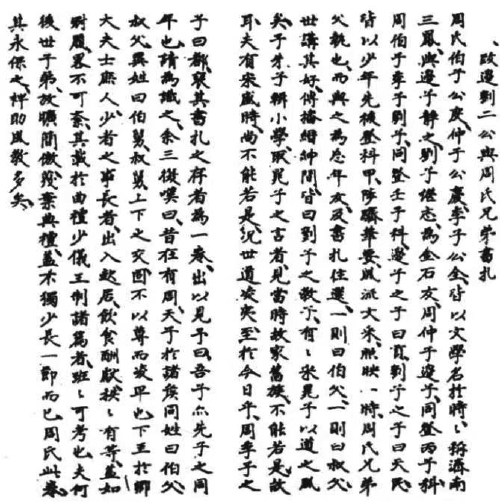 跋邊劉二公與周氏兄弟書札
周氏伯子公度仲子公慶季子公全皆以文學名於時、稱濟南
三鳳與邊子靜之劉子繼志為金石友周仲子邊子同登丙子科
周伯子季子劉子同登壬子科邊子之子曰貢劉子之子曰天民
皆以少年先後登科甲陟驟華要風流文采照映一時周氏兄弟
父執也而與之為忘年友及書札往還一則曰伯父一則曰叔父
世講其好傳播縉紳間皆曰劉子之教子有、宋晃子以道之風
矣子朱子輯小學取晃子之言者見當時故家舊族不能若是故
耳夫有宋盛時尚不能若是況世道凌夷至於今日乎周季子之
子曰都裒其書札之存者為一卷出以見予曰吾子亦先子之同
年也請為識之余三復嘆曰昔在有周天子於諸侯同姓曰伯父
叔父異姓曰伯舅叔舅上下之交固不以尊而凌卑也下至於卿
大夫士庶人少者之事長者出入起居飲食酬獻秩、有等蓋如
冠履畧不可紊其識於曲禮少儀王制諸篇者班、可考也夫何
後世子弟放曠簡傲蔑棄典禮蓋不獨少長一節而已周氏此卷
其永保之裨助風教多矣